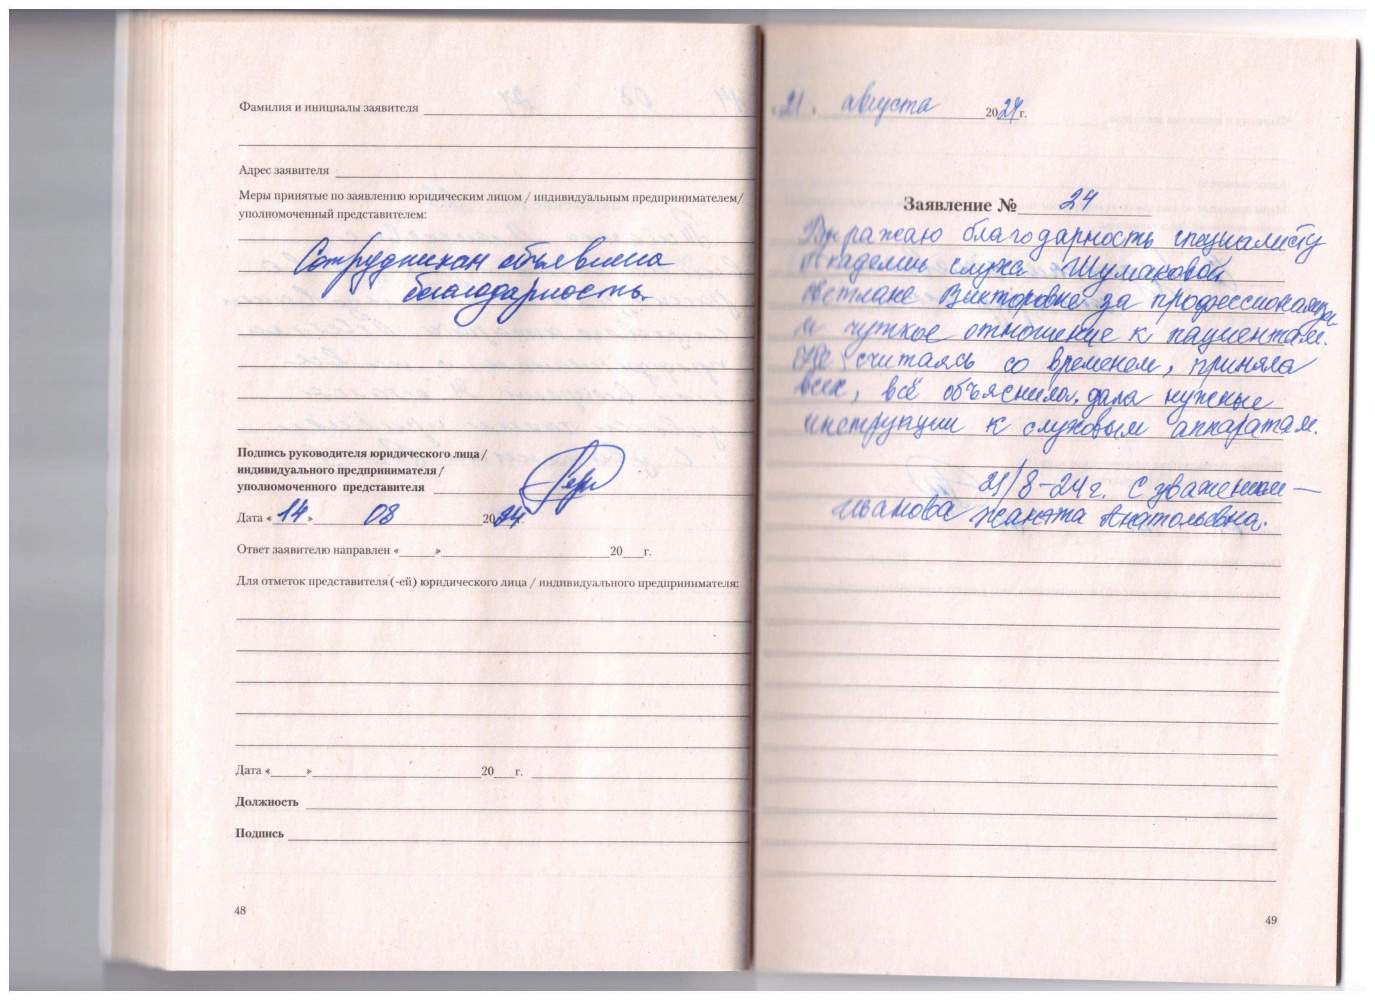 Фамилия и инициалы заявителя
Адрес заявителя
Меры принятые по заявлению юридическим лицом / индивидуальным предпринимателем/
уполномоченный представителем:
Сотрудникам объявлена
благодарность.
Подпись руководителя юридического лица /
индивидуального предпринимателя /
уполномоченного представителя
Дата « 14 » 08 2024г.
Ответ заявителю направлен «____»____20__г.
Для отметок представителя (-ей) юридического лица / индивидуального предпринимателя:
Дата «____»____20__г.
Должность
Подпись
48
21. августа 2024г.
Заявление № 24
Выражаю благодарность специалисту
Академии слуха Шумаковой
Светлане Викторовне за профессионализм
и чуткое отношение к пациентам.
Не считаясь со временем, приняла
всех, всё объяснила, дала нужные
инструкции к слуховым аппаратам.
21/8-24г. С уважением —
Иванова Жанэта Анатольевна.
49